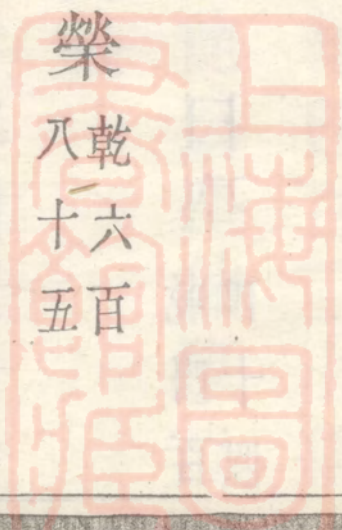 榮
乾六百
八十五
上海圖
書館藏